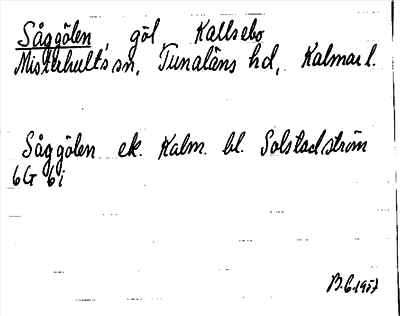 Såggölen göl, Kallsebo
Misterhults sn, Tunaläns hd, Kalmar l.
Såggölen ek. Kalm. bl. Solstadström
6G 6i
B.G. 1957